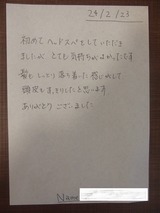 24/2/23
初めてヘッドスパをしていただき
ましたが とても気持ちがよかったです
髪もしっとり落ち着いた感じがして
頭皮もすっきりしたと思います
ありがとうございました
Name